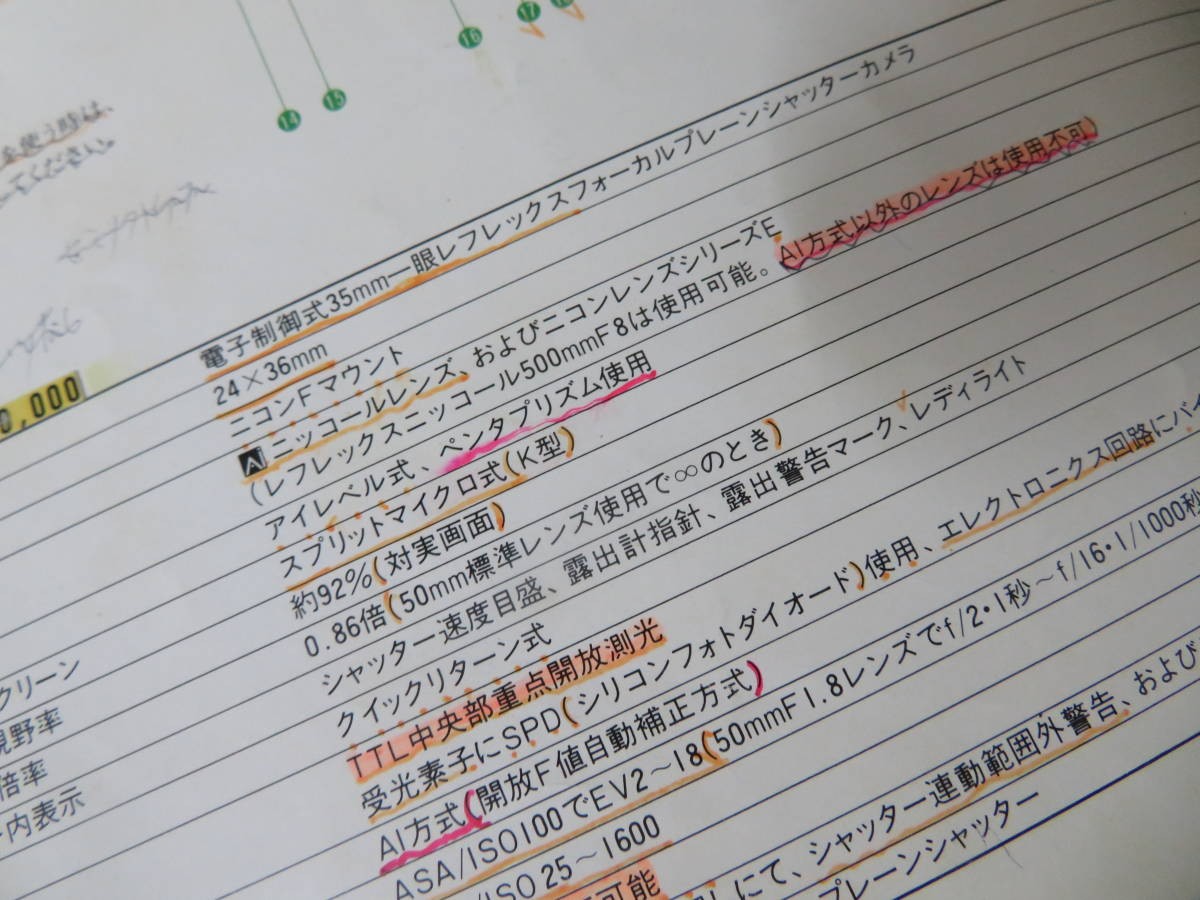 14
15
16
17
を使う時は、
てください。
0,000
電子制御式35mm一眼レフレックスフォーカルプレーンシャッターカメラ
24×36mm
ニコンFマウント
Aiニッコールレンズ、およびニコンレンズシリーズE
(レフレックスニッコール500mmF8は使用可能。AI方式以外のレンズは使用不可)
アイレベル式、ペンタプリズム使用
クリーン スプリットマイクロ式(K型)
視野率 約92%(対実画面)
倍率 0.86倍(50mm標準レンズ使用で∞のとき)
内表示 シャッター速度目盛、露出計指針、露出警告マーク、レディライト
クイックリターン式
TTL中央部重点開放測光
受光素子にSPD(シリコンフォトダイオード)使用、エレクトロニクス回路にバイ
AI方式(開放F値自動補正方式)
ASA/ISO100でEV2～18(50mmF1.8レンズでf/2・1秒～f/16・1/1000秒
/ISO 25～1600
可能
にて、シャッター連動範囲外警告、および
プレーンシャッター